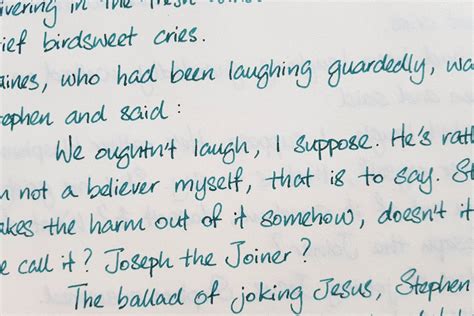 ivering in the fresh
ief birdsweet cries.
aines, who had been laughing guardedly, wa
ephen and said :
We oughtn't laugh, I suppose. He's rath
m not a believer myself, that is to say. St
akes the harm out of it somehow, doesn't it
e call it? Joseph the Joiner?
The ballad of joking Jesus, Stephen